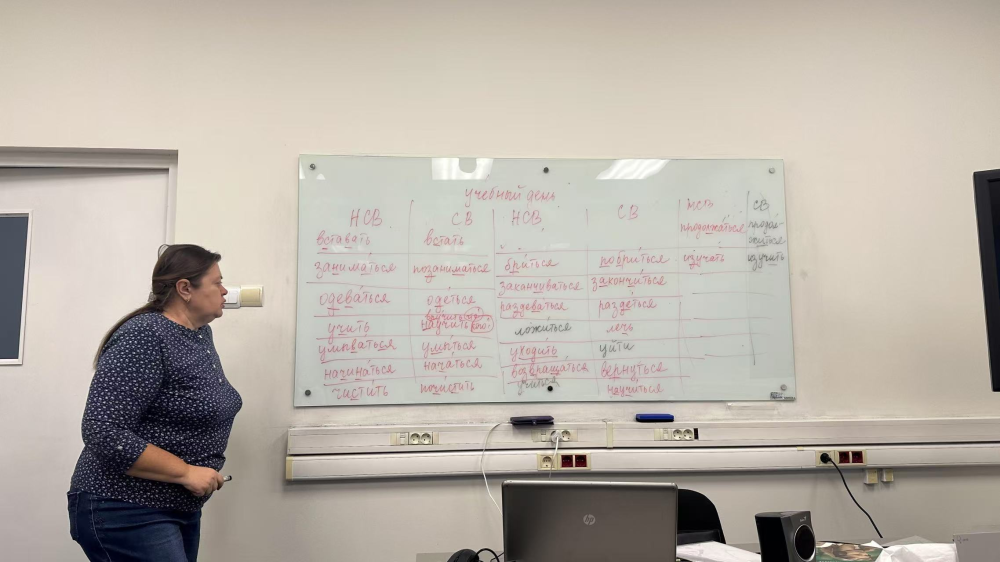 учебный день
НСВ СВ НСВ СВ НСВ СВ
вставать встать продолжаться продолжиться
заниматься позаниматься бриться побриться изучать изучить
закончиться
одеваться одеться раздеваться раздеться
учить научить ложиться лечь
умываться умыться уходить уйти
начинаться начаться возвращаться вернуться
чистить почистить учиться научиться
hp